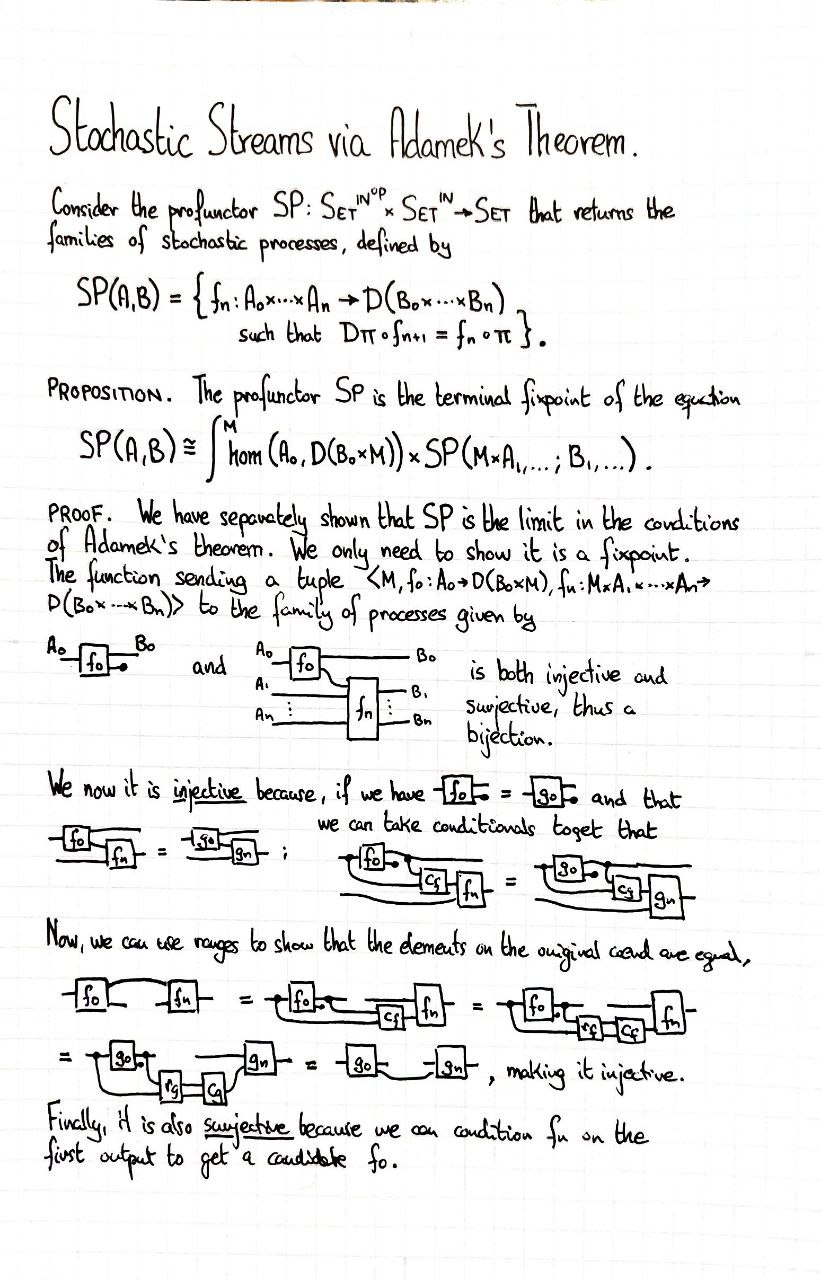 Stochastic Streams via Adamek's Theorem.
Consider the profunctor SP: SET^IN^OP × SET^IN → SET that returns the
families of stochastic processes, defined by
SP(A,B) = { fn : A0×···×An → D(B0×···×Bn)
such that Dπ ∘ fn+1 = fn ∘ π }.
PROPOSITION. The profunctor SP is the terminal fixpoint of the equation
SP(A,B) ≅ ∫^M hom(A0, D(B0×M)) × SP(M×A1,...; B1,...).
PROOF. We have separately shown that SP is the limit in the conditions
of Adamek's theorem. We only need to show it is a fixpoint.
The function sending a tuple <M, f0: A0→D(B0×M), fn: M×A1×···×An→
D(B0×···×Bn)> to the family of processes given by
A0 f0 B0 and A0 f0 B0 A1 An fn B1 Bn
is both injective and
surjective, thus a
bijection.
We now it is injective because, if we have f0 = g0 and that
f0 fn = g0 gn ; we can take conditionals toget that
f0 cf fn = g0 cg gn
Now, we can use ranges to show that the elements on the original coend are equal,
f0 fn = f0 cf fn = f0 rf cf fn
= g0 rg cg gn = g0 gn , making it injective.
Finally, it is also surjective because we can condition fn on the
first output to get a candidate f0.